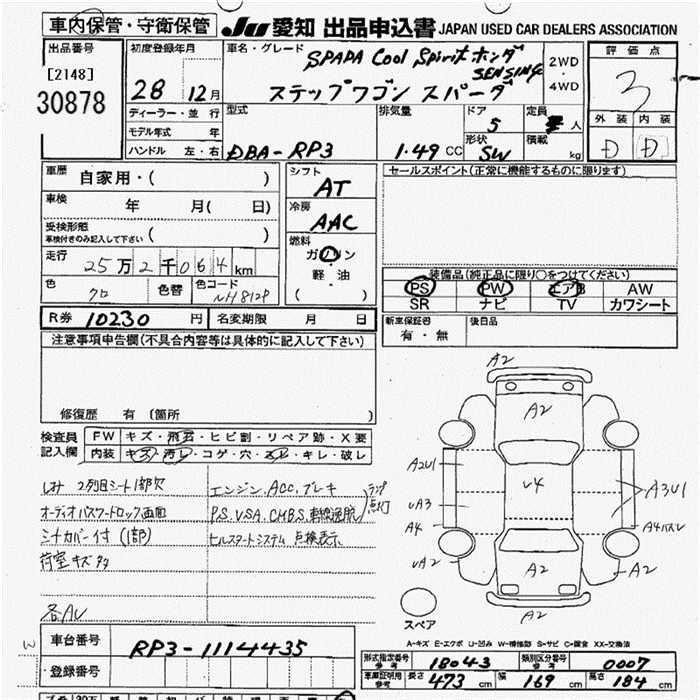 車内保管・守衛保管 JU 愛知 出品申込書 JAPAN USED CAR DEALERS ASSOCIATION
出品番号
[2148]
30878
初度登録年月
28 12月
ディーラー・並 行
モデル年式 年
ハンドル 左・右
車名・グレード
SPADA Cool Spirit ホンダ
SENSING
ステップワゴン スパーダ
2WD
・
4WD
型式
DBA-RP3
排気量
1.49 CC
ドア
5
形状
SW
定員
人
積載
kg
評価点
3
外装 内装
D D
車歴
自家用・( )
車検
年 月( 日)
受検形態
車検付きのみ記入して下さい ( )
走行
25万2千064 km
色
クロ
色替
色コード
NH812P
シフト
AT
冷房
AAC
燃料
ガソリン
・
軽・油
( )
セールスポイント(正常に機能するものに限ります)
装備品(純正品に限り○をつけてください)
PS PW エアB AW
SR ナビ TV カワシート
新車保証書
有・無
後日品
R券 10230 円
名変期限 月 日
注意事項申告欄(不具合内容等は具体的に記入して下さい)
修復歴 有 (箇所 )
検査員
記入欄
FW キズ・飛石・ヒビ割・リペア跡・X要
内装 キズ・汚レ・コゲ・穴・スレ・キレ・破レ
2列目シート1部欠
オーディオパスワードロック画面
シートカバー付(1部)
荷室キズ
各AU
エンジン、ACC、ブレーキ
P.S、V.S.A、C.M.B.S、車線逸脱
ランプ点灯
ヒルスタートシステム 点検表示
A2
A2
A2U1
U4
UA3
A3U1
A4
A4バスレ
UA2
A2
A2
A2
スペア
A=キズ E=エクボ U=凹み W=補修跡 S=サビ C=腐食 XX=交換済
W
車台番号
RP3-1114435
登録番号
形式指定番号
参考
18043
類別区分番号
参考
0007
車庫証明用
参考
長さ 473 cm 幅 169 cm 高さ 184 cm